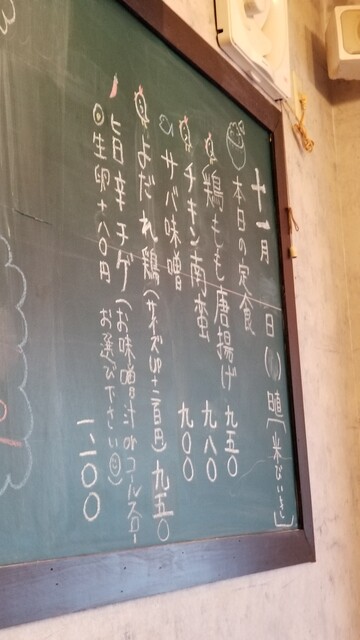 十一月　日（　）曜「米びいき」
本日の定食
鶏もも唐揚げ 九五〇
チキン南蛮 九八〇
サバ味噌 九〇〇
よだれ鶏（サイズUP+二百円）九五〇
旨辛チゲ（お味噌汁orコールスロー
お選び下さい） 一、二〇〇
生卵+八〇円